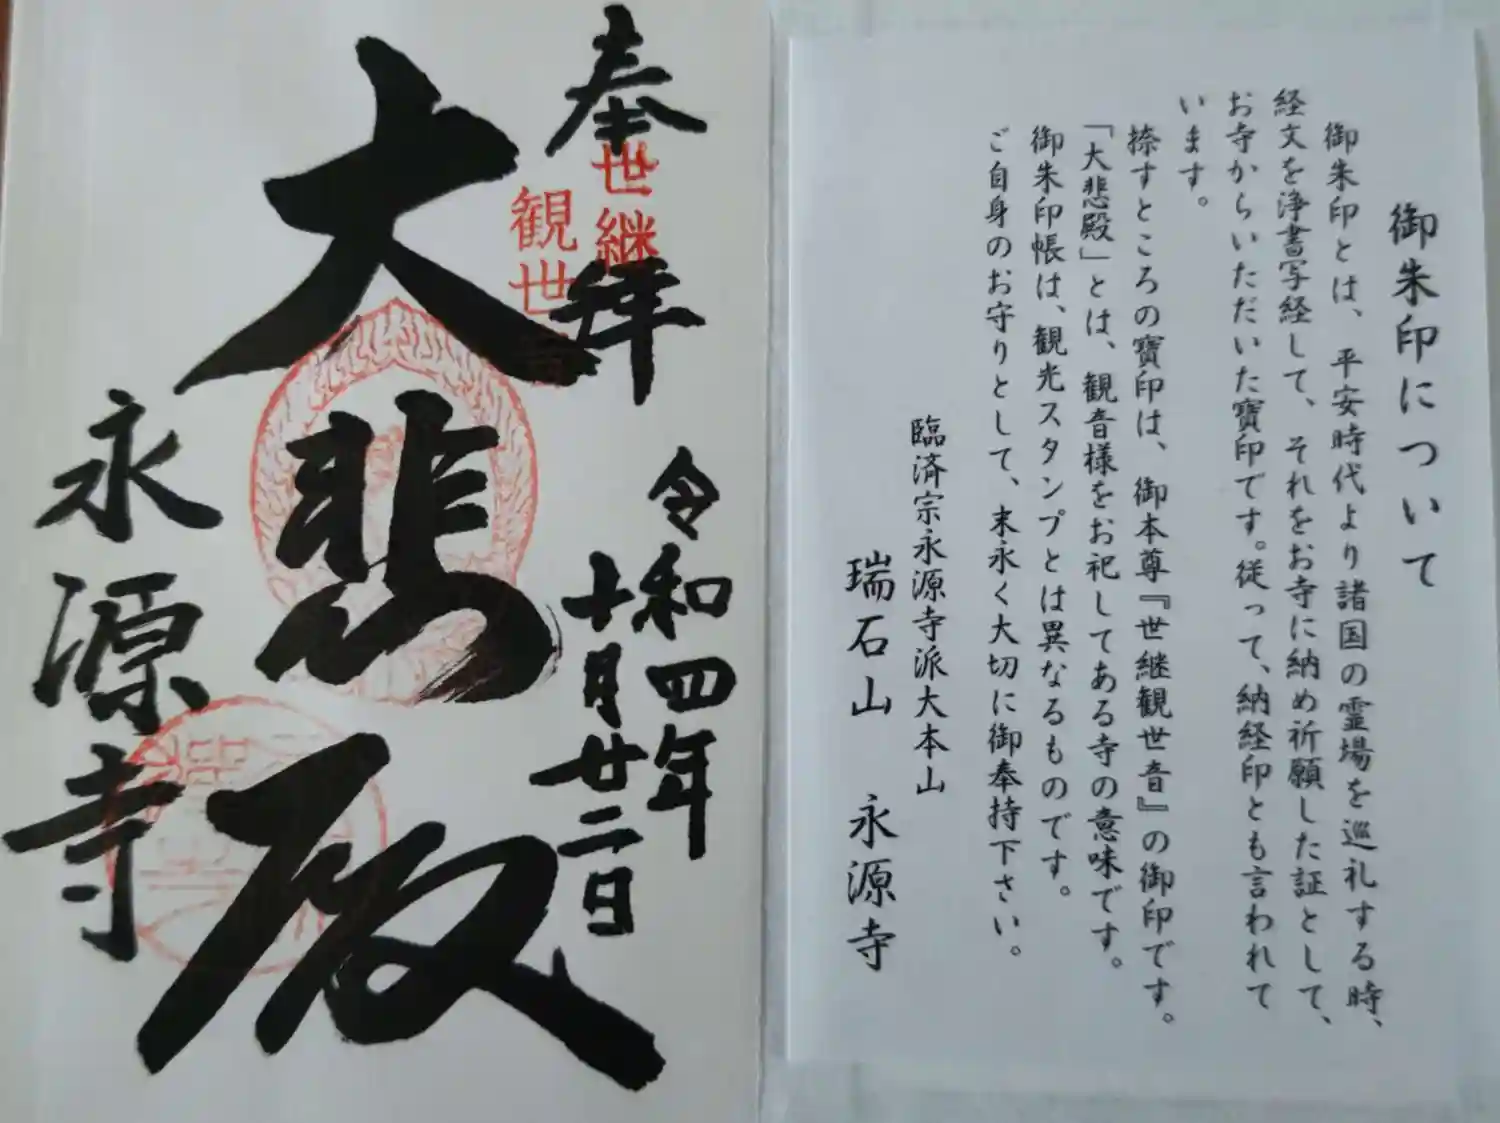 奉拝
世継
観世音
令和四年
十月廿二日
大悲殿
永源寺
御朱印について
御朱印とは、平安時代より諸国の霊場を巡礼する時、
経文を浄書写経して、それをお寺に納め祈願した証として、
お寺からいただいた寶印です。従って、納経印とも言われて
います。
捺すところの寶印は、御本尊『世継観世音』の御印です。
「大悲殿」とは、観音様をお祀してある寺の意味です。
御朱印帳は、観光スタンプとは異なるものです。
ご自身のお守りとして、末永く大切に御奉持下さい。
臨済宗永源寺派大本山
瑞石山 永源寺